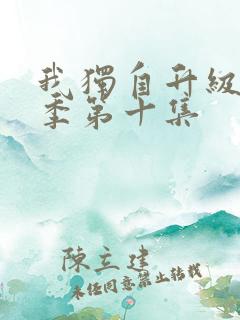 我獨自升級
季第十集
陳立建
未經同意禁止轉載